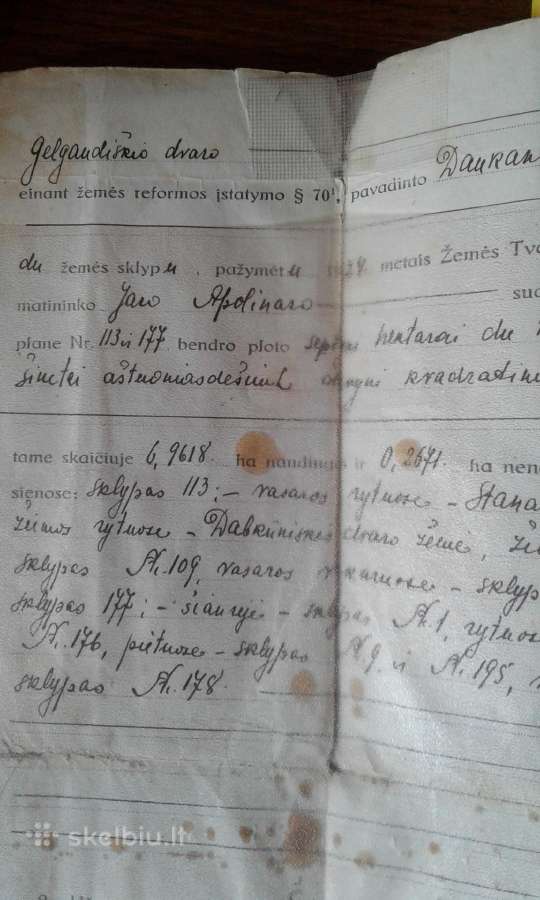 Gelgaudiškio dvaro
einant žemės reformos įstatymo § 70¹, pavadinto Daukan
du žemės sklypu, pažymėtu 1924 metais Žemės Tva
matininko Jaro Apolinaro sud
plane Nr. 113 ir 177 bendro ploto septyni hektarai du
šimtai aštuoniasdešimt devyni kvadratini
tame skaičiuje 6,9618 ha naudingos ir 0,2671 ha nen
sienose: sklypas 113; – vasaros rytuose – Stana
žiemos rytuose – dvaro žemė, ži
sklypas Nr. 109, vasaros vakaruose – sklyp
sklypas 177; – šiaurėje – sklypas Nr. 1, rytuose
Nr. 176, pietuose – sklypas Nr. 9 ir Nr. 195,
sklypas Nr. 178.
skelbiu.lt